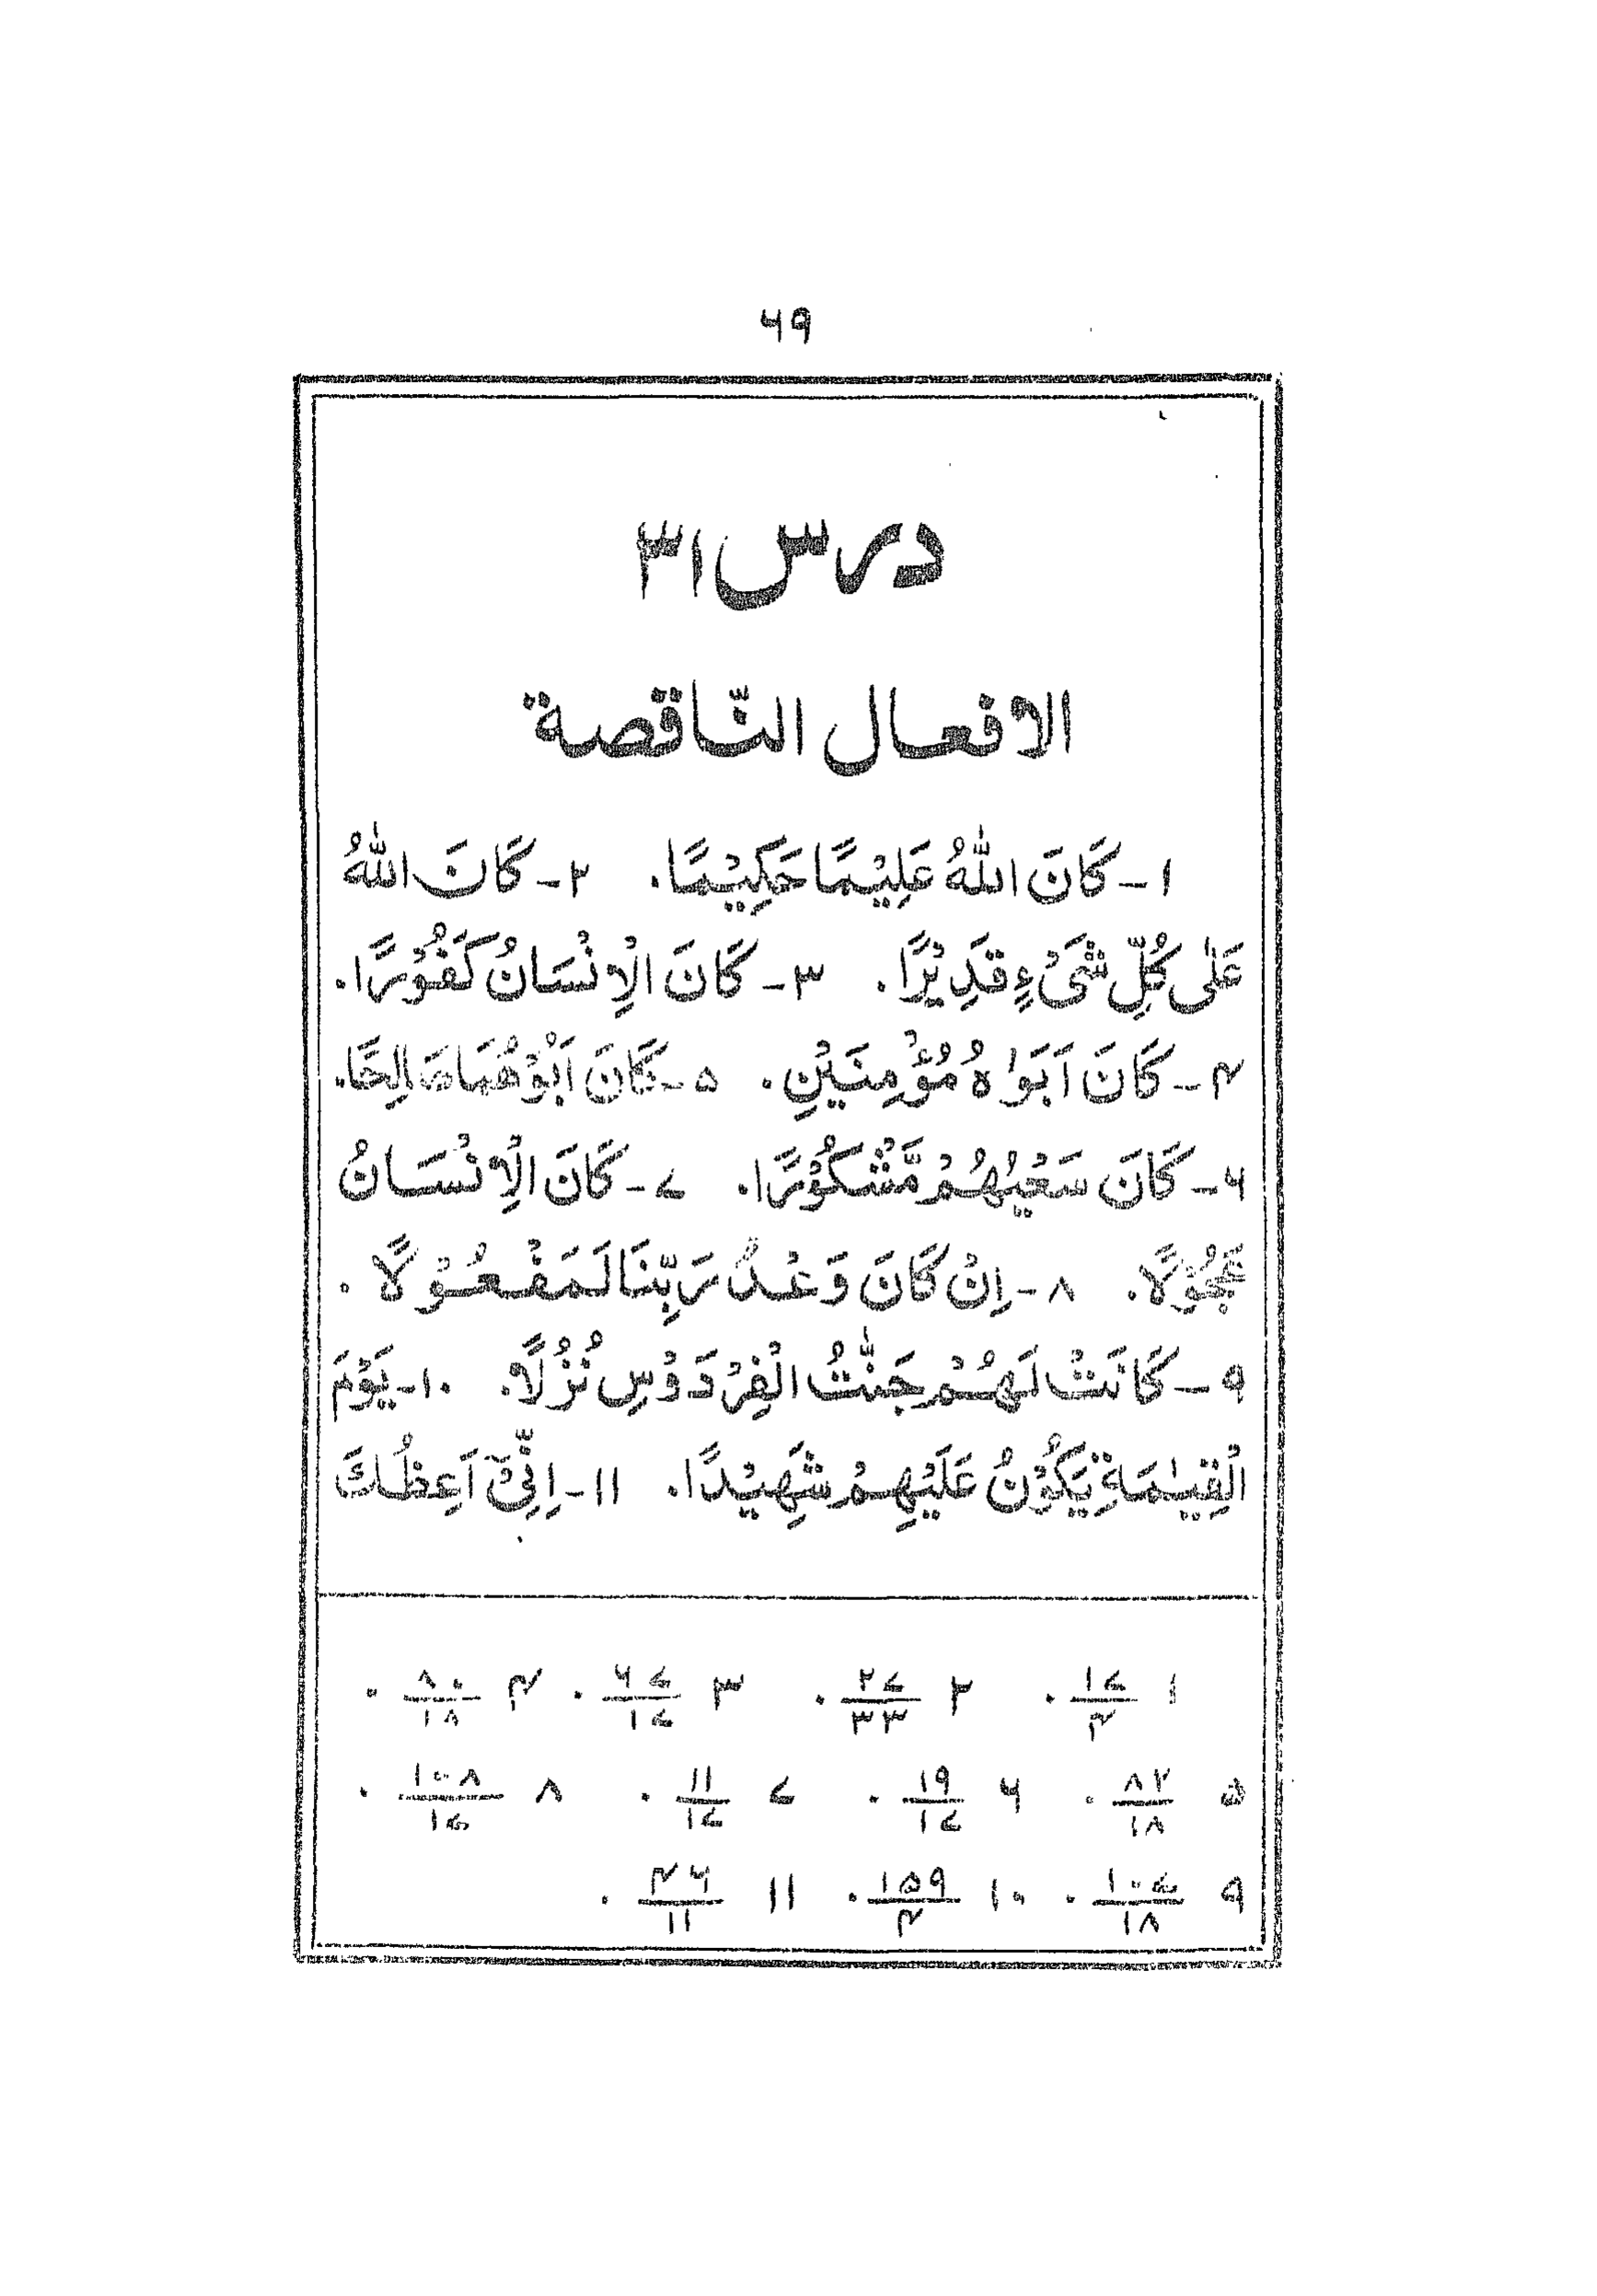 ۶۹
درس ۳۱
الافعال النّاقصة
۱ - كَانَ اللّٰهُ عَلِيْمًا حَكِيْمًا. ۲ - كَانَ اللّٰهُ
عَلٰى كُلِّ شَىْءٍ قَدِيْرًا. ۳ - كَانَ الْاِنْسَانُ كَفُوْرًا.
۴ - كَانَ اَبَوَاهُ مُؤْمِنَيْنِ. ۵ - كَانَ اَبُوْهُمَا صَالِحًا.
۶ - كَانَ سَعْيُهُمْ مَّشْكُوْرًا. ۷ - كَانَ الْاِنْسَانُ
عَجُوْلًا. ۸ - اِنْ كَانَ وَعْدُ رَبِّنَا لَمَفْعُوْلًا .
۹ - كَانَتْ لَهُمْ جَنّٰتُ الْفِرْدَوْسِ نُزُلًا. ۱۰ - يَوْمَ
الْقِيٰمَةِ يَكُوْنُ عَلَيْهِمْ شَهِيْدًا. ۱۱ - اِنِّىْٓ اَعِظُكَ
۱ ۱۷/۴ . ۲ ۲۷/۳۳ . ۳ ۶۷/۱۷ . ۴ ۸۰/۱۸ .
۵ ۸۲/۱۸ . ۶ ۱۹/۱۷ . ۷ ۱۱/۱۷ . ۸ ۱۰۸/۱۷ .
۹ ۱۰۷/۱۸ . ۱۰ ۱۵۹/۴ . ۱۱ ۴۶/۱۱ .